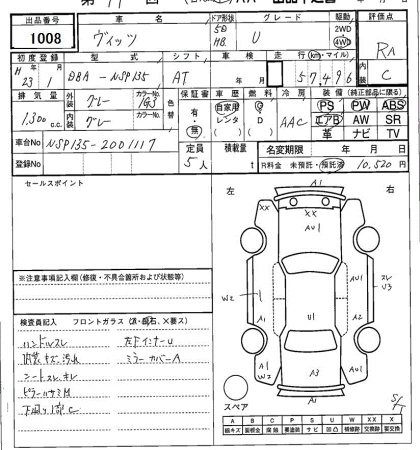 出品番号 車名 ドア形状 グレード 駆動 評価点
1008 ヴィッツ 5D HB U 2WD 4WD RA
初度登録 型式 シフト 車検 走行(km・マイル) C
H 23 1 DBA-NSP135 AT 年 月 57,496
排気量 外装 グレー カラーNo. 1G3 色替 保証書 車歴 燃料 冷房 装備(純正部品に限る)
1,300 c.c. 内装 グレー カラーNo. 有・無 自家用 レンタ G D AAC PS PW ABS
エアB AW SR
革 ナビ TV
車台No NSP135-2001117 定員 積載量 名変期限 年 月 日
登録No 5人 R料金 未預託・預託済 10,520円
セールスポイント
左 右
A1
XX XX
AU1
W2 A1 U1 AU1 A2 スレ U3
A1 W2 A3 A1
A1
スペア
※注意事項記入欄(修復・不具合箇所および状態等)
検査員記入 フロントガラス(派・飛石、X要ス)
ハンドルスレ 左下インナーU
内装キズ汚れ ミラーカバーA
シートスレ、キレ
ピラーハサミ跡
下廻り1部C
A B C P S U W XX X
線キズ 腐蝕 要塗装 サビ 凹凸 補修跡 交換済 要交換